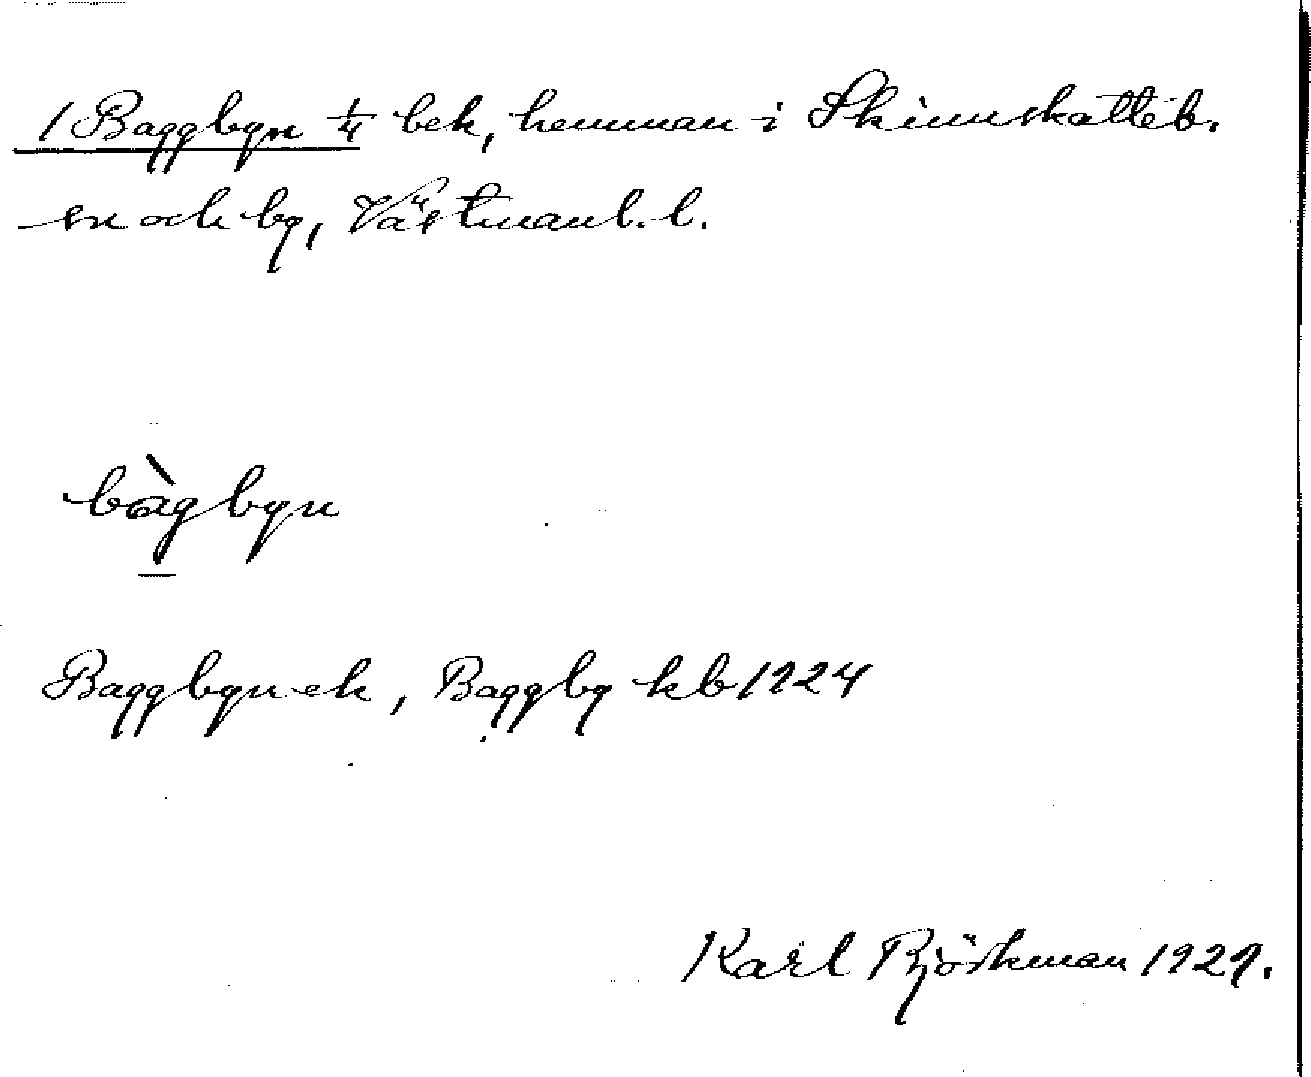 1 Baggbyn 1/4 bek, hemman i Skinnskatteb.
sn och by, Västmanl. l.
bàgbyn
Baggbyn ek, Baggby kb 1924
Karl Björkman 1929.